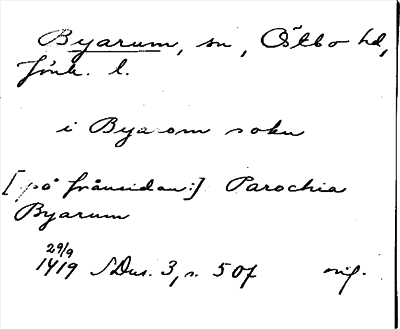 Byarum, sn, Östbo hd,
Jönk. l.
i Byarom sokn
[på frånsidan:] Parochia
Byarum
29/9
1419 SDns. 3, s. 507 orig.